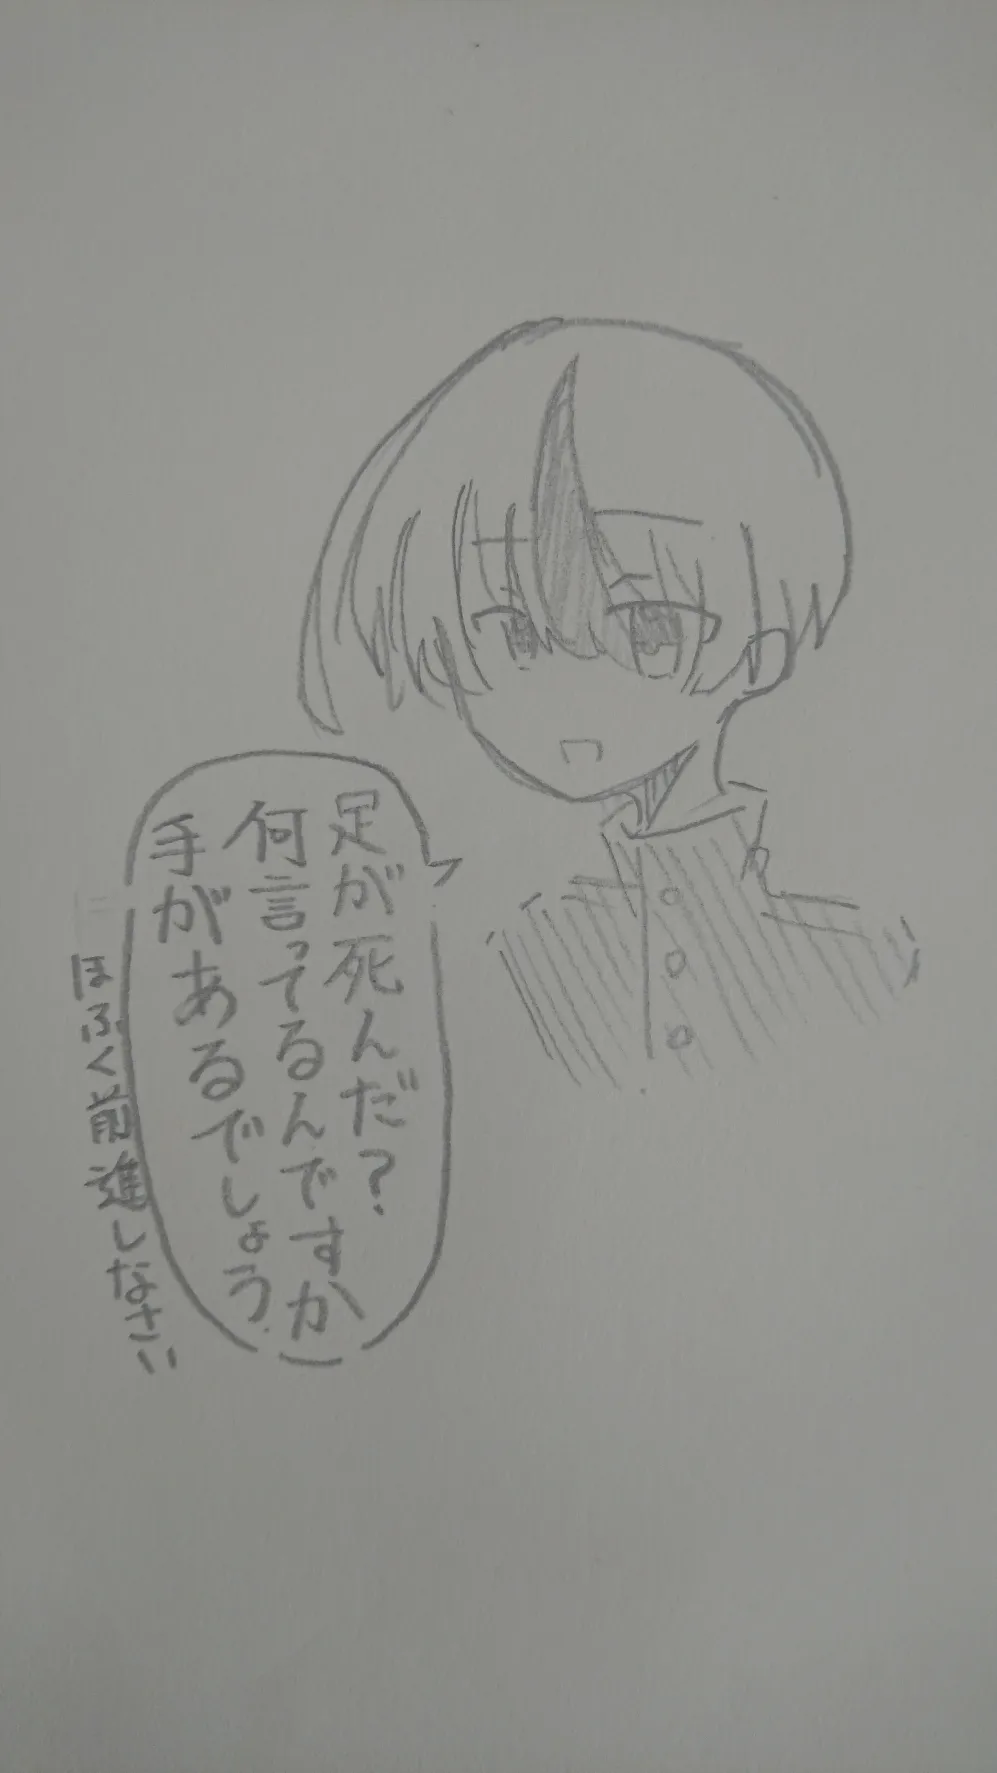 足が死んだ?
何言ってるんですか
手があるでしょう
ほふく前進しなさい